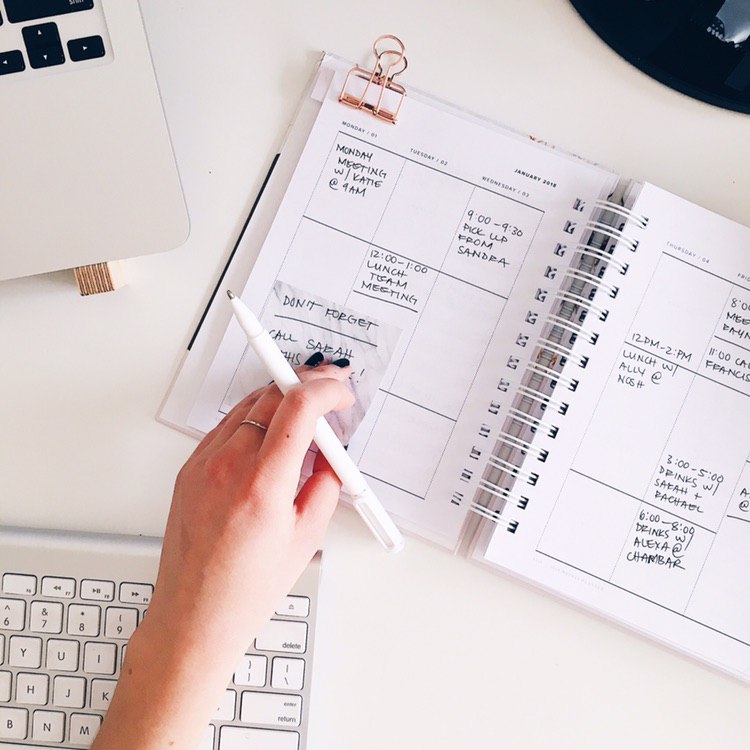 JANUARY 2018
MONDAY / 01
TUESDAY / 02
WEDNESDAY / 03
MONDAY
MEETING
W/ KATIE
@ 9AM
9:00-9:30
PICK UP
FROM
SANDRA
12:00-1:00
LUNCH
TEAM
MEETING
DON'T FORGET
CALL SARAH
THURSDAY / 04
12PM-2PM
LUNCH W/
ALLY @
NOSH
3:00-5:00
DRINKS W/
SARAH +
RACHAEL
6:00-8:00
DRINKS W/
ALEXA @
CHAMBAR
11:00 CALL
6
&
7
*
8
(
9
Y
U
I
H
J
K
B
N
M
delete
enter
return